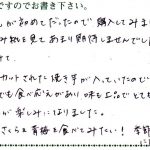 ですのでお書き下さい。
んが初めてだったので購入してみまし
み物を見てあまり期待しませんでし
けて、
カットされた焼き芋が入っていたので
でも食べ応えがあり味も上品でとても
が楽しみになりました。
さくらと青梅を食べてみたい！